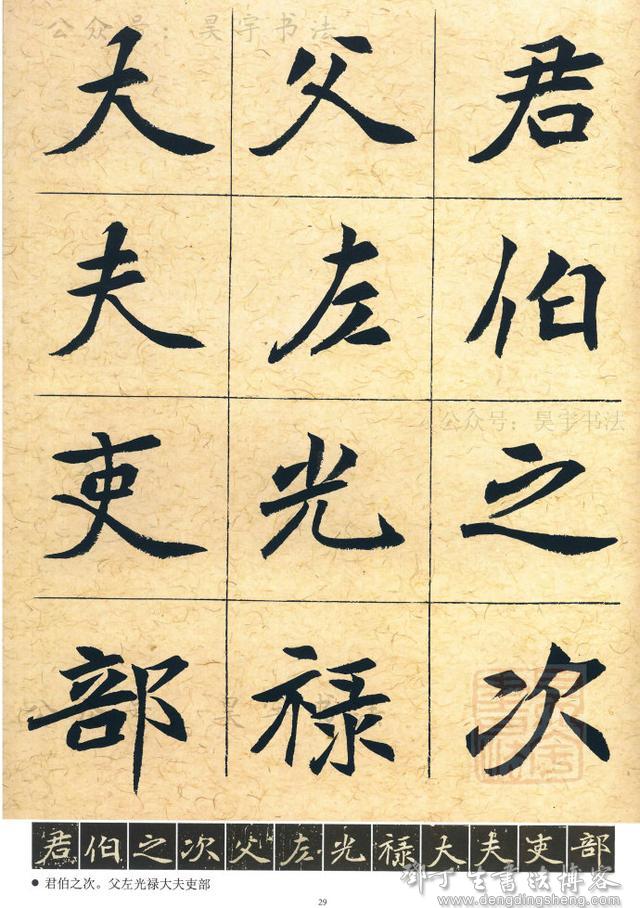 公众号：昊宇书法
君伯之次
父左光禄
大夫吏部
公众号：昊宇书法
公众号：昊宇书法
君伯之次父左光禄大夫吏部
● 君伯之次。父左光禄大夫吏部
29
邓丁生书法博客
www.dengdingsheng.com